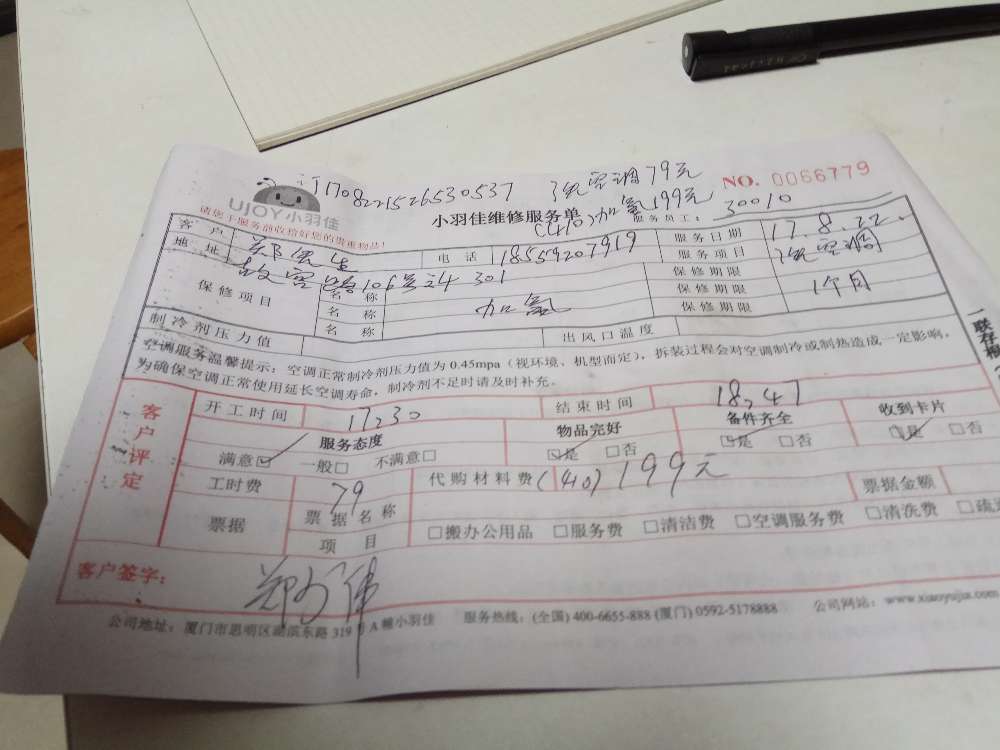 订170822152653 0537 洗空调79元 NO. 0066779
UJOY小羽佳 小羽佳维修服务单 (410)加氟199元 服务员工: 30010
请您于服务前收拾好您的贵重物品!
客户 郑医生 电话 18559207919 服务日期 17.8.22.
地址 106号之4 301 服务项目 洗空调
保修项目 名称 加氟 保修期限 1个月
名称 保修期限
名称 保修期限
制冷剂压力值 出风口温度
空调服务温馨提示:空调正常制冷剂压力值为0.45mpa(视环境、机型而定),拆装过程会对空调制冷或制热造成一定影响。
为确保空调正常使用延长空调寿命,制冷剂不足时请及时补充。
一联存根
客户评定
开工时间 17:30 结束时间 18:47
服务态度 物品完好 备件齐全 收到卡片
满意☑ 一般□ 不满意□ ☑是 □否 ☑是 □否 ☑是 □否
工时费 79 代购材料费 (410) 199元 票据金额
票据 票据名称 □搬办公用品 □服务费 □清洁费 □空调服务费 □清洗费 □疏
项目
客户签字:
公司地址:厦门市思明区湖滨东路319号A幢小羽佳 服务热线:(全国)400-6655-888 (厦门)0592-5178888 公司网站:www.xiaoyujia.com